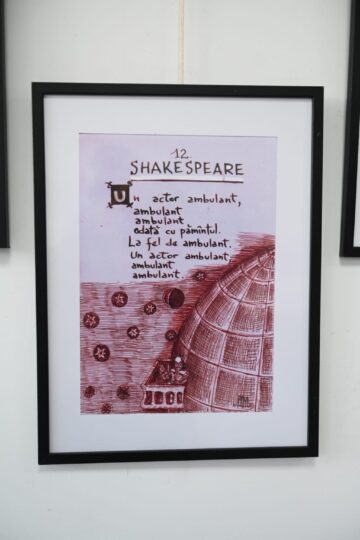 12.
SHAKESPEARE
Un actor ambulant,
ambulant
ambulant
odată cu pămîntul.
La fel de ambulant.
Un actor ambulant
ambulant
ambulant.